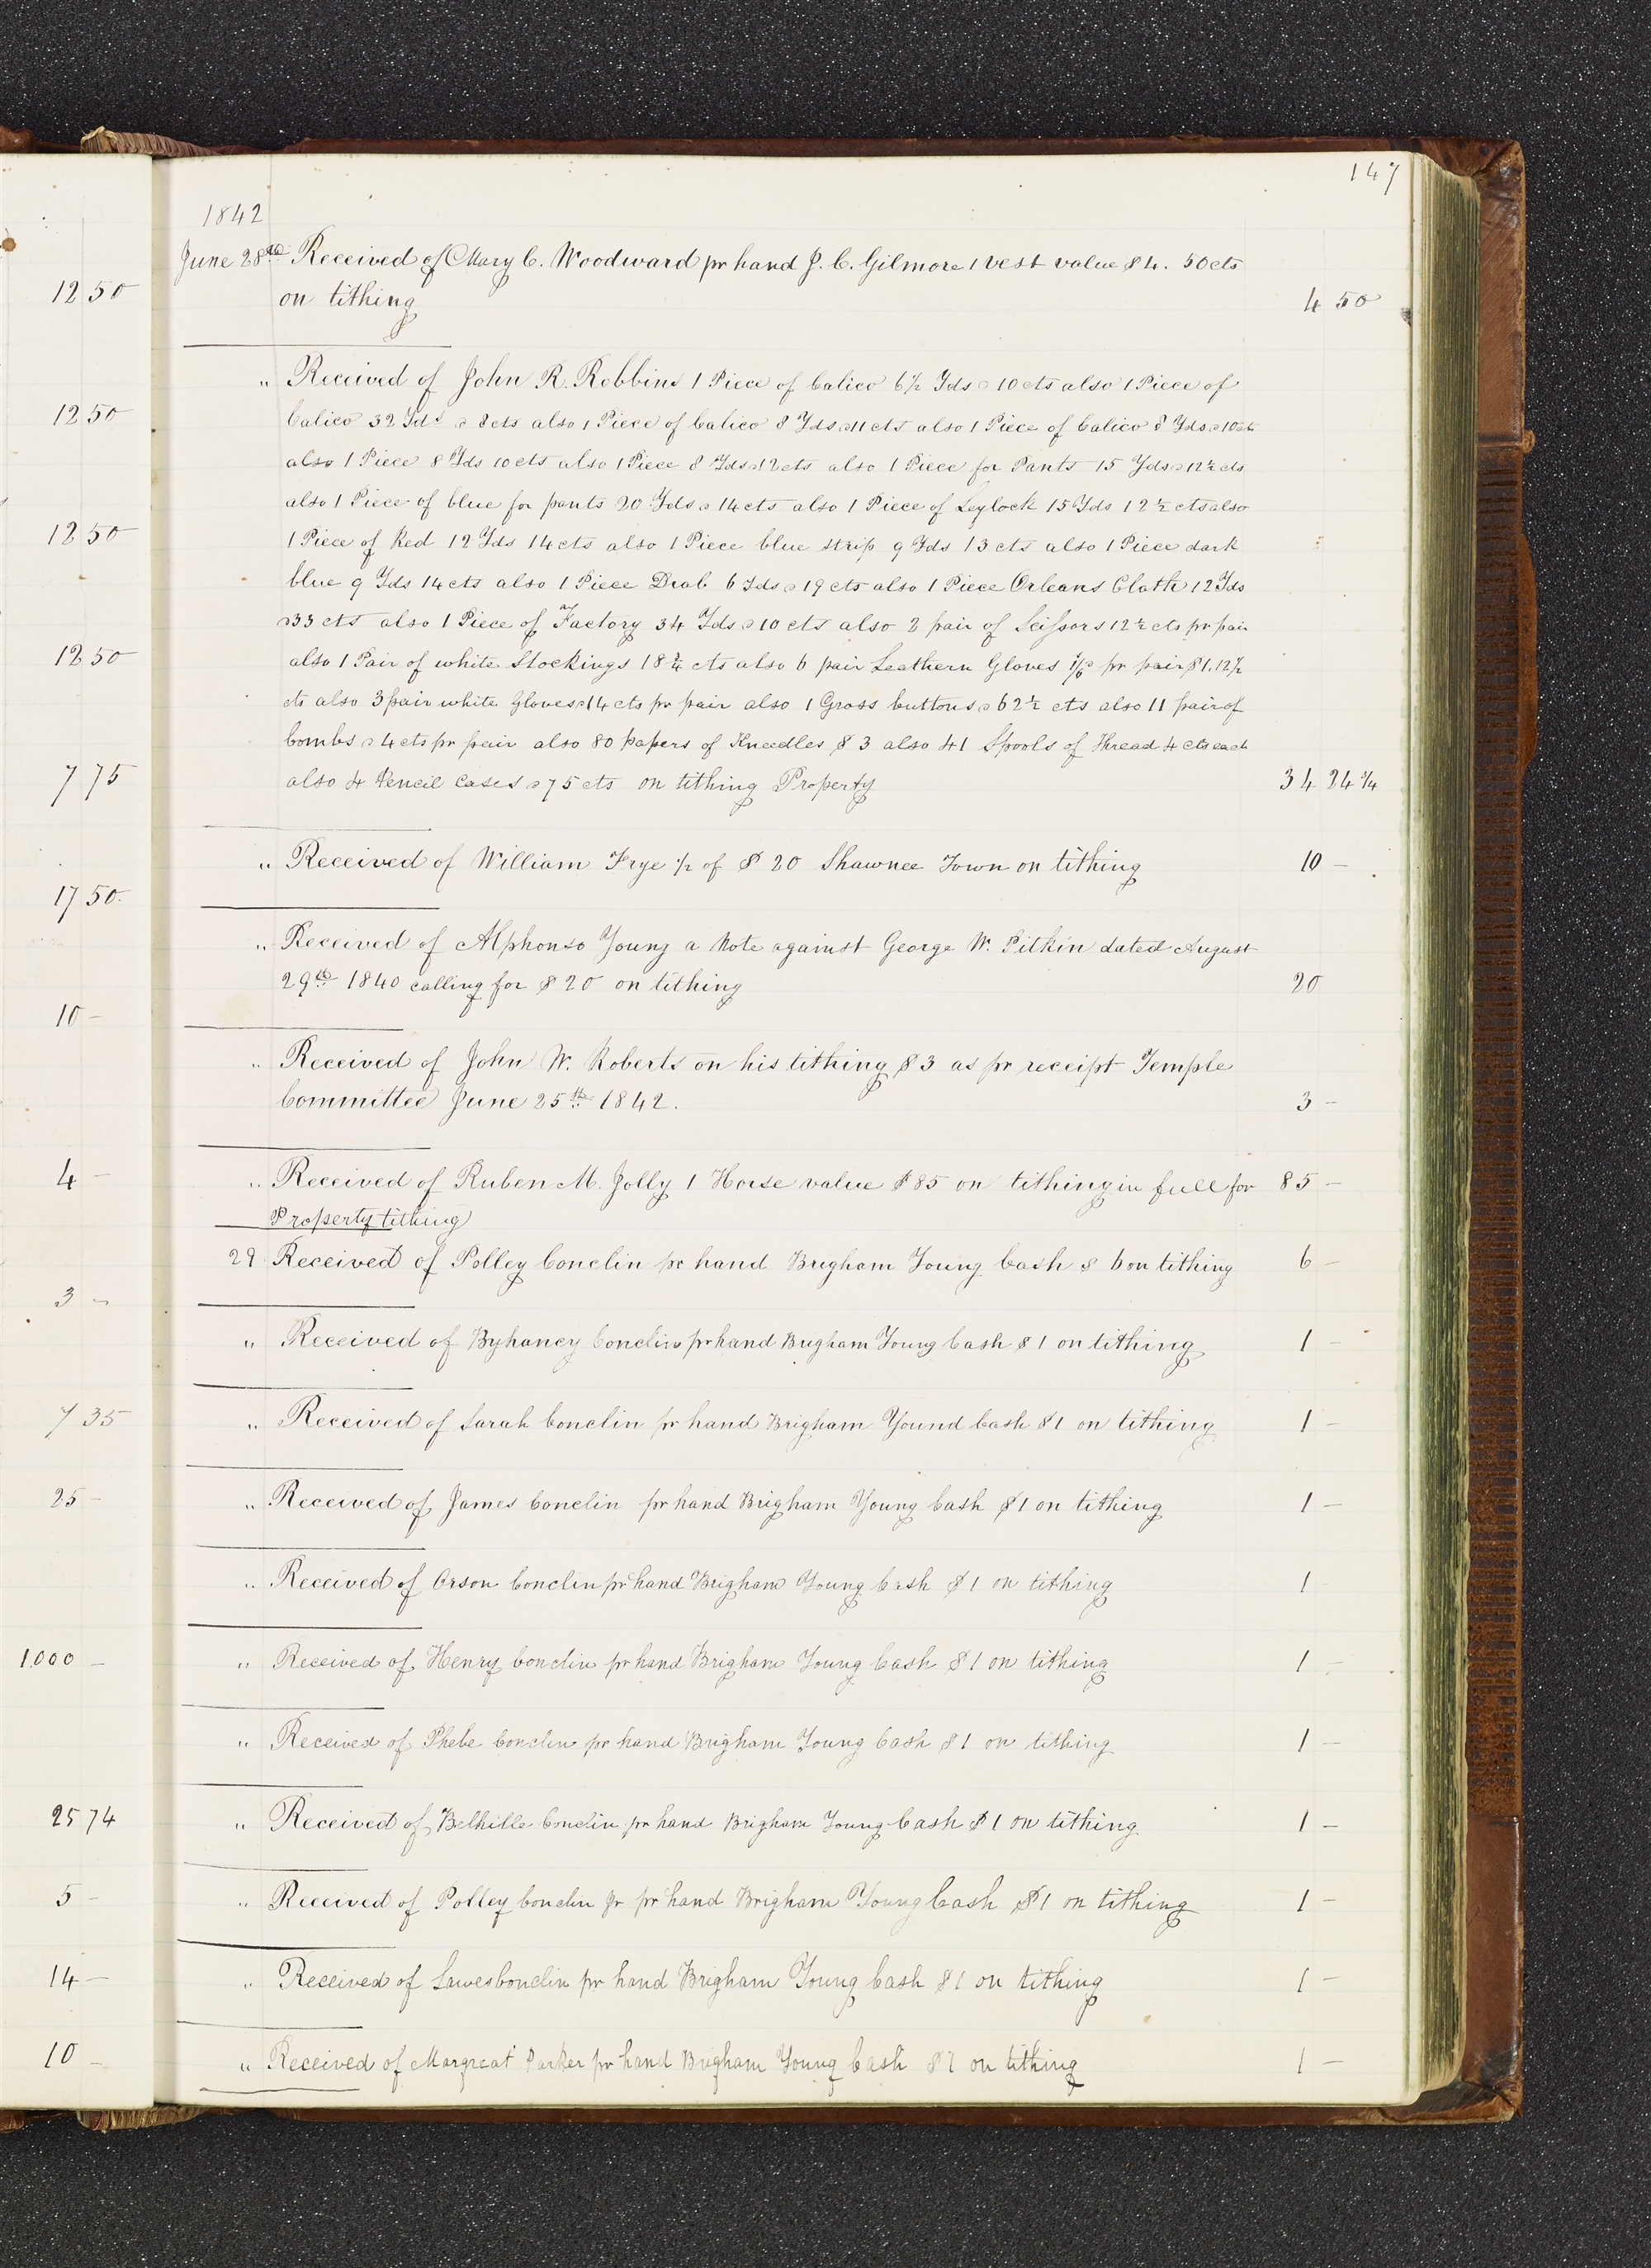 147
1842
12 50
June 28th Received of Mary C. Woodward pr hand J. C. Gilmore 1 vest value $4. 50 cts
on tithing 4 50
12 50
" Received of John R. Robbins 1 Piece of Calico 6½ Yds a 10 cts also 1 Piece of
Calico 32 Yds a 8 cts also 1 Piece of Calico 8 Yds a 11 cts also 1 Piece of Calico 8 Yds a 10 cts
also 1 Piece 8 Yds 10 cts also 1 Piece 8 Yds a 12 cts also 1 Piece for Pants 15 Yds a 12½ cts
also 1 Piece of blue for pants 20 Yds a 14 cts also 1 Piece of Leylock 15 Yds 12½ cts also
12 50
1 Piece of Red 12 Yds 14 cts also 1 Piece blue strip 9 Yds 13 cts also 1 Piece dark
blue 9 Yds 14 cts also 1 Piece Drab 6 Yds a 19 cts also 1 Piece Orleans Cloth 12 Yds
a 33 cts also 1 Piece of Factory 34 Yds a 10 cts also 2 pair of Scissors 12½ cts pr pair
12 50
also 1 Pair of white Stockings 18¾ cts also 6 pair Leathern Gloves 1/6 pr pair $1.12½
cts also 3 pair white Gloves a 14 cts pr pair also 1 Gross buttons a 62½ cts also 11 pair of
Combs a 4 cts pr pair also 80 papers of Kneedles $3 also 41 Spools of Thread 4 cts each
7 75
also 4 Pencil Cases a 75 cts on tithing Property 34 24¾
" Received of William Frye ½ of $20 Shawnee Town on tithing 10 -
17 50
" Received of Alphonso Young a Note against George W. Pitkin dated August
29th 1840 calling for $20 on tithing 20
10 -
" Received of John W. Roberts on his tithing $3 as pr receipt Temple
Committee June 25th 1842. 3 -
4 -
" Received of Ruben M. Jolly 1 Horse value $85 on tithing in full for 85 -
Property tithing
29 Received of Polley Conclin pr hand Brigham Young Cash $6 on tithing 6 -
3 -
" Received of Byhaney Conclin pr hand Brigham Young Cash $1 on tithing 1 -
7 35
" Received of Sarah Conclin pr hand Brigham Yound Cash $1 on tithing 1 -
25 -
" Received of James Conclin pr hand Brigham Young Cash $1 on tithing 1 -
" Received of Orson Conclin pr hand Brigham Young Cash $1 on tithing 1
1,000 -
" Received of Henry Conclin pr hand Brigham Young Cash $1 on tithing 1 -
" Received of Phebe Conclin pr hand Brigham Young Cash $1 on tithing 1 -
25 74
" Received of Belhille Conclin pr hand Brigham Young Cash $1 on tithing 1 -
5 -
" Received of Polley Conclin Jr pr hand Brigham Young Cash $1 on tithing 1 -
14 -
" Received of Lawes Conclin pr hand Brigham Young Cash $1 on tithing 1 -
10 -
" Received of Margreat Parker pr hand Brigham Young Cash $1 on tithing 1 -